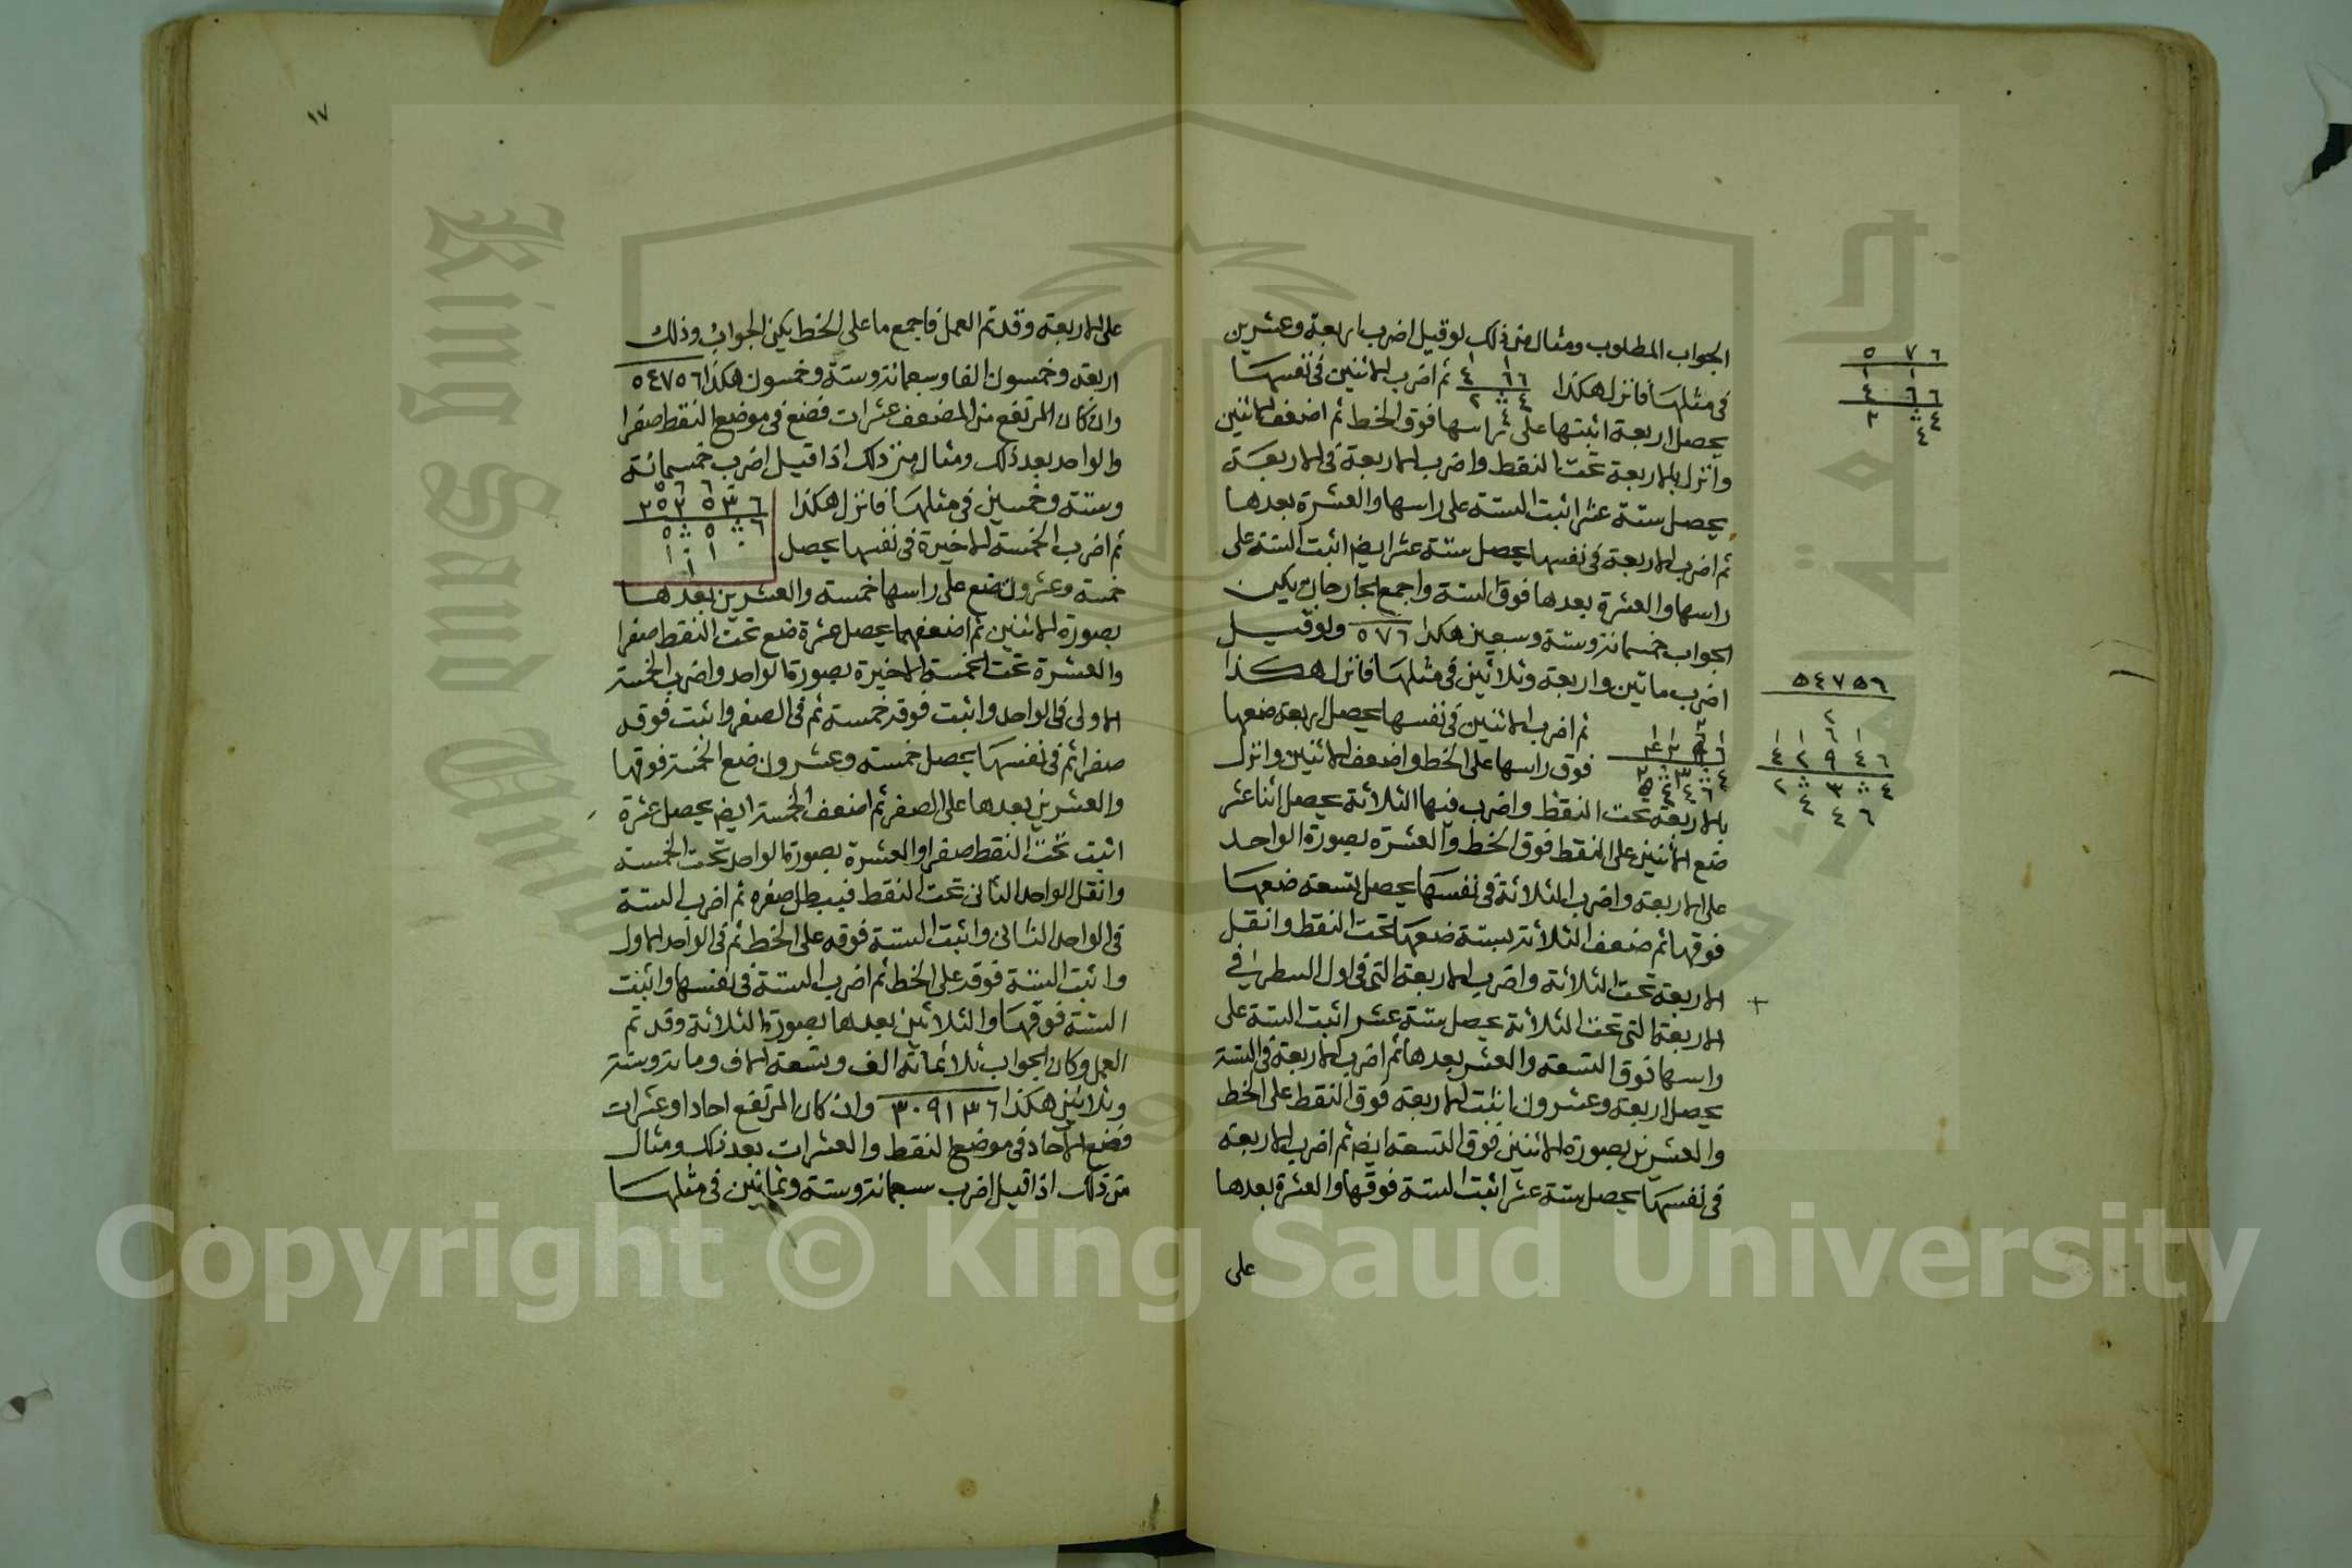 الجواب المطلوب ومثال من ذلك لو قيل اضرب اربعة وعشرين
في مثلها فانزل هكذا ثم اضرب الاثنين في نفسها
يحصل اربعة اثبتها على راسها فوق الخط ثم اضعف الاثنين
وانزل بالاربعة تحت النقط واضرب الاربعة في الاربعة
يحصل ستة عشر اثبت الستة على راسها والعشرة بعدها
ثم اضرب الاربعة في نفسها يحصل ستة عشر ايضا اثبت الستة على
راسها والعشرة بعدها فوق الستة واجمع الخارجان يكن
الجواب خمسمائة وستة وسبعين هكذا ٥٧٦ ولو قيل
اضرب مائتين واربعة وثلاثين في مثلها فانزل هكذا
ثم اضرب الاثنين في نفسها يحصل اربعة ضعها
فوق راسها على الخط واضعف الاثنين وانزل
بالاربعة تحت النقط واضرب فيها الثلاثة يحصل اثنا عشر
ضع الاثنين على النقط فوق الخط والعشرة بصورة الواحد
على الاربعة واضرب الثلاثة في نفسها يحصل تسعة ضعها
فوقها ثم ضعف الثلاثة بستة ضعها تحت النقط وانقل
الاربعة تحت الثلاثة واضرب الاربعة التي في اول السطر في
الاربعة التي تحت الثلاثة يحصل ستة عشر اثبت الستة على
راسها فوق التسعة والعشر بعدها ثم اضرب الاربعة في الستة
يحصل اربعة وعشرون اثبت الاربعة فوق النقط على الخط
والعشرين بصورة الاثنين فوق التسعة ايضا ثم اضرب الاربعة
في نفسها يحصل ستة عشر اثبت الستة فوقها والعشرة بعدها
على
٥٧٦
١ ١
٤ ٦ ٦
٢ ⁘ ٤
٤
٥٤٧٥٦
٢
١ ١ ٦ ١
٤ ٢ ٩ ٤ ٦
٢ ⁘ ٣ ⁘ ٤
٤ ٤ ٦
١٧
على الاربعة وقد تم العمل فاجمع ما على الخط يكن الجواب وذلك
اربعة وخمسون الفا وسبعمائة وستة وخمسون هكذا ٥٤٧٥٦
وان كان المرتفع من المضعف عشرات فضع في موضع النقط صفرا
والواحد بعد ذلك ومثال من ذلك اذا قيل اضرب خمسمائة
وستة وخمسين في مثلها فانزل هكذا
ثم اضرب الخمسة الاخيرة في نفسها يحصل
خمسة وعشرون ضع على راسها خمسة والعشرين بعدها
بصورة الاثنين ثم اضعفها يحصل عشرة ضع تحت النقط صفرا
والعشرة تحت الخمسة الاخيرة بصورة الواحد واضرب الخمسة
الاولى في الواحد واثبت فوقه خمسة ثم في الصفر واثبت فوقه
صفرا ثم في نفسها يحصل خمسة وعشرون ضع الخمسة فوقها
والعشرين بعدها على الصفر ثم اضعف الخمسة ايضا يحصل عشرة
اثبت تحت النقط صفرا والعشرة بصورة الواحد تحت الخمسة
وانقل الواحد الثاني تحت النقط فيبطل صفره ثم اضرب الستة
في الواحد الثاني واثبت الستة فوقه على الخط ثم في الواحد الاول
واثبت الستة فوقه على الخط ثم اضرب الستة في نفسها واثبت
الستة فوقها والثلاثين بعدها بصورة الثلاثة وقد تم
العمل وكان الجواب ثلاثمائة الف وتسعة الاف ومائة وستة
وثلاثين هكذا ٣٠٩١٣٦ وان كان المرتفع احادا وعشرات
فضع الآحاد في موضع النقط والعشرات بعد ذلك ومثال
من ذلك اذا قيل اضرب سبعمائة وستة وثمانين في مثلها
Copyright © King Saud University
King Saud University